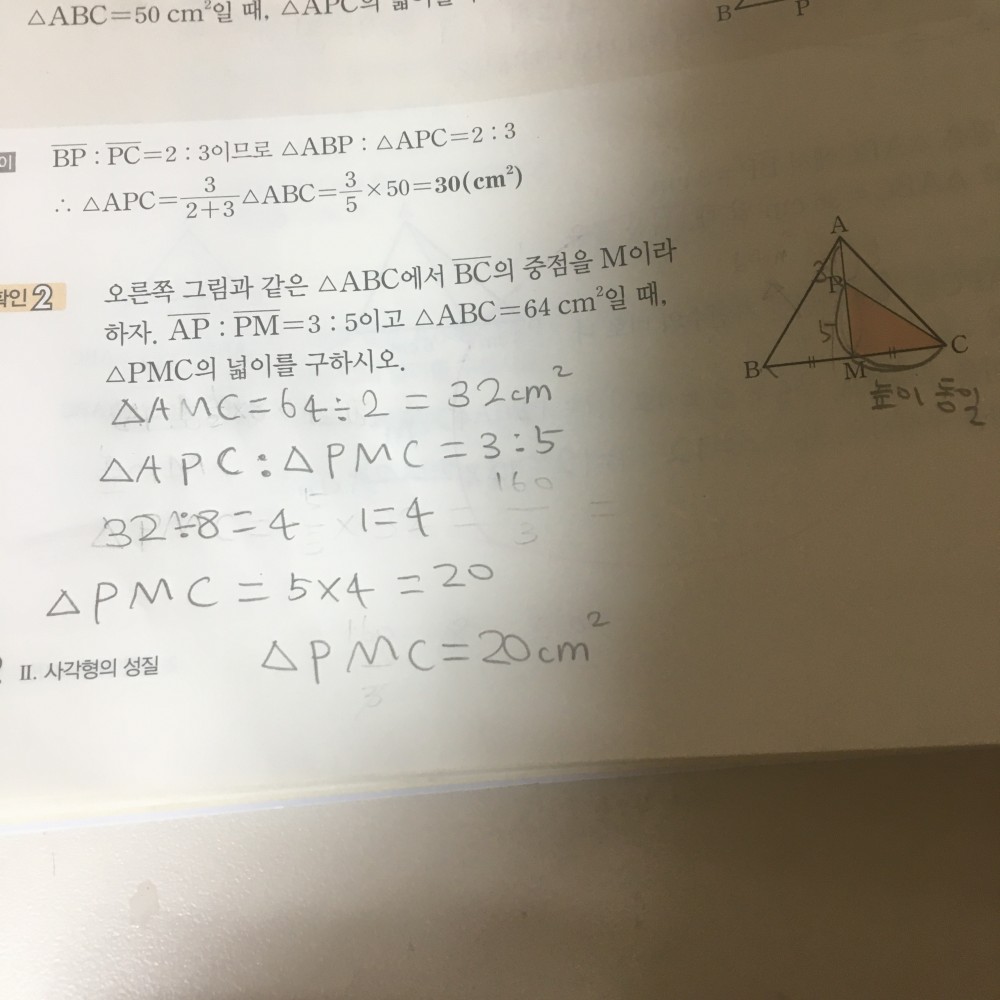 △ABC=50 cm²일 때, △APC의 넓이를
B P
이 BP : PC=2 : 3이므로 △ABP : △APC=2 : 3
∴ △APC=3/(2+3)△ABC=3/5×50=30(cm²)
확인2 오른쪽 그림과 같은 △ABC에서 BC의 중점을 M이라
하자. AP : PM=3 : 5이고 △ABC=64 cm²일 때,
△PMC의 넓이를 구하시오.
A
3
P
5
B M C
높이 동일
△AMC=64÷2=32cm²
△APC:△PMC=3:5
32÷8=4 1=4
△PMC=5×4=20
△PMC=20cm²
II. 사각형의 성질